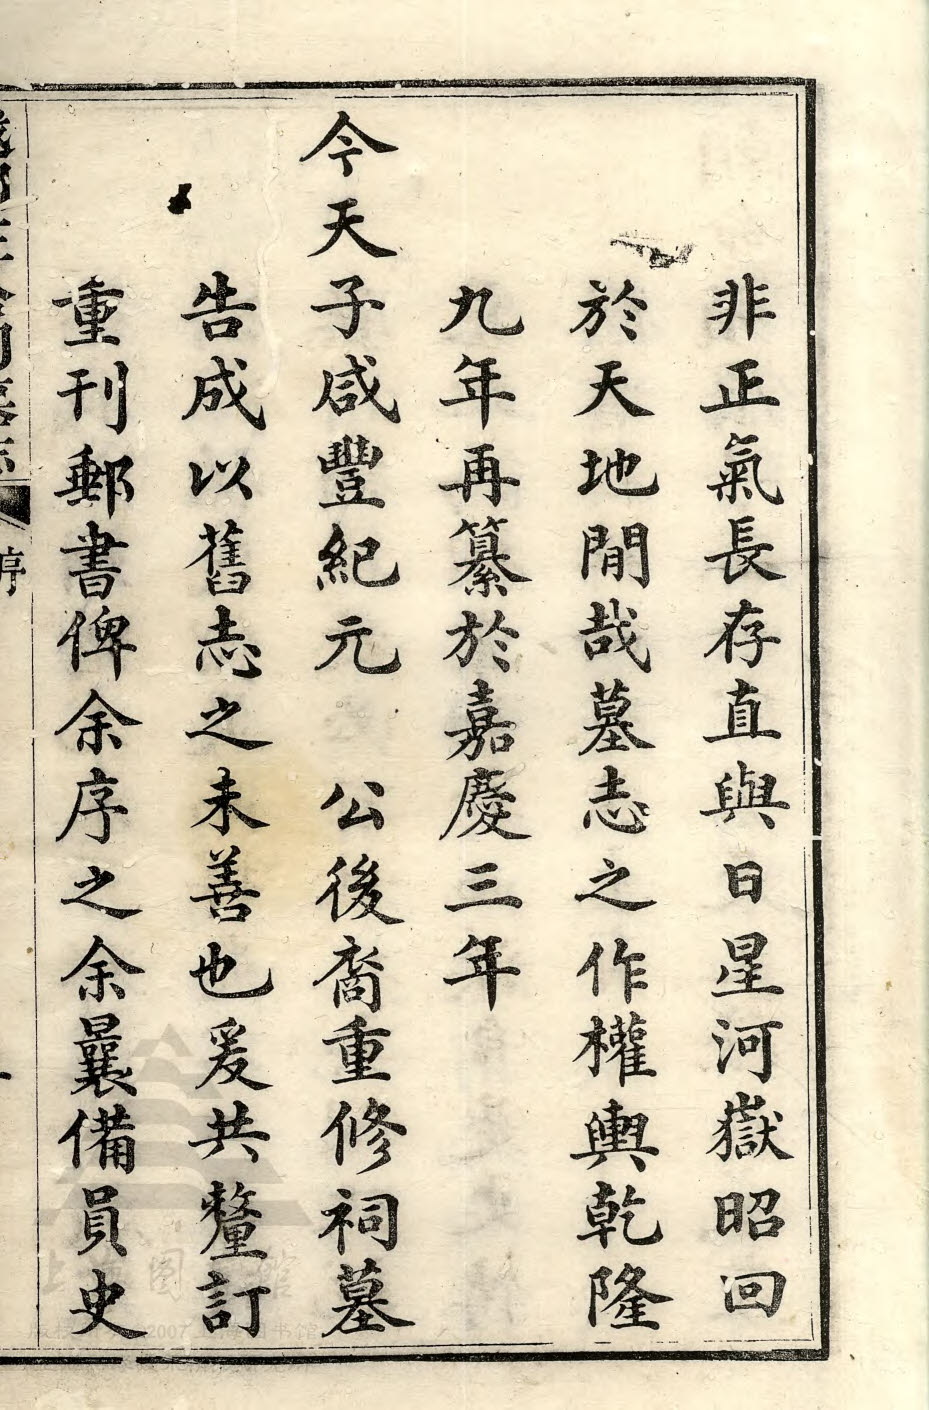 非正氣長存直與日星河嶽昭回
於天地閒哉墓志之作權輿乾隆
九年再纂於嘉慶三年
今天子咸豐紀元 公後裔重修祠墓
告成以舊志之未善也爰共釐訂
重刊郵書俾余序之余曩備員史
序